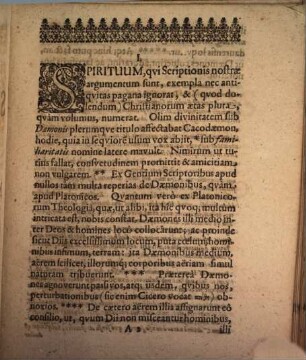 I.
SPIRITUUM, qvi Scriptionis nostræ
argumentum sunt, exempla nec anti-
qvitas pagana ignorat, & (quod do-
lendum) Christianorum ætas plura,
qvàm volumus, numerat. Olim divinitatem sub
Dæmonis plerumqve titulo affectabat Cacodæmon,
hodie, quia in seqviorē usum vox abiit, * sub fami-
liaritatis nomine latere mavult. Nimirum ut tu-
tiùs fallat, consvetudinem promittit & amicitiam,
non vulgarem. ** Ex Gentium Scriptoribus apud
nullos tam multa reperias de Dæmonibus, qvàm
apud Platonicos. Quantum verò ex Platonico-
rum Theologiâ, quæ, ut alibi, ita hîc quoq; multùm
intricata est, nobis constat. Dæmones illi medio in-
ter Deos & homines locô collocârunt; ac proinde
sicut Diis excelsissimum locum, puta cœlum, homi-
nibus infimum, terram; ita Dæmonibus medium,
aërem scilicet, illorumq; corporibus aëriam simul
naturam tribuerunt. *** Prætereà Dæmo-
nes agnoverunt passivos, atq; iisdem, qvibus nos,
perturbationibus (sic enim Cicero vocat) ob-
noxios. *** De cætero aërem illis assignarunt eô
consiliô, ut, quum Dii non misceantur hominibus,
A 2 illi